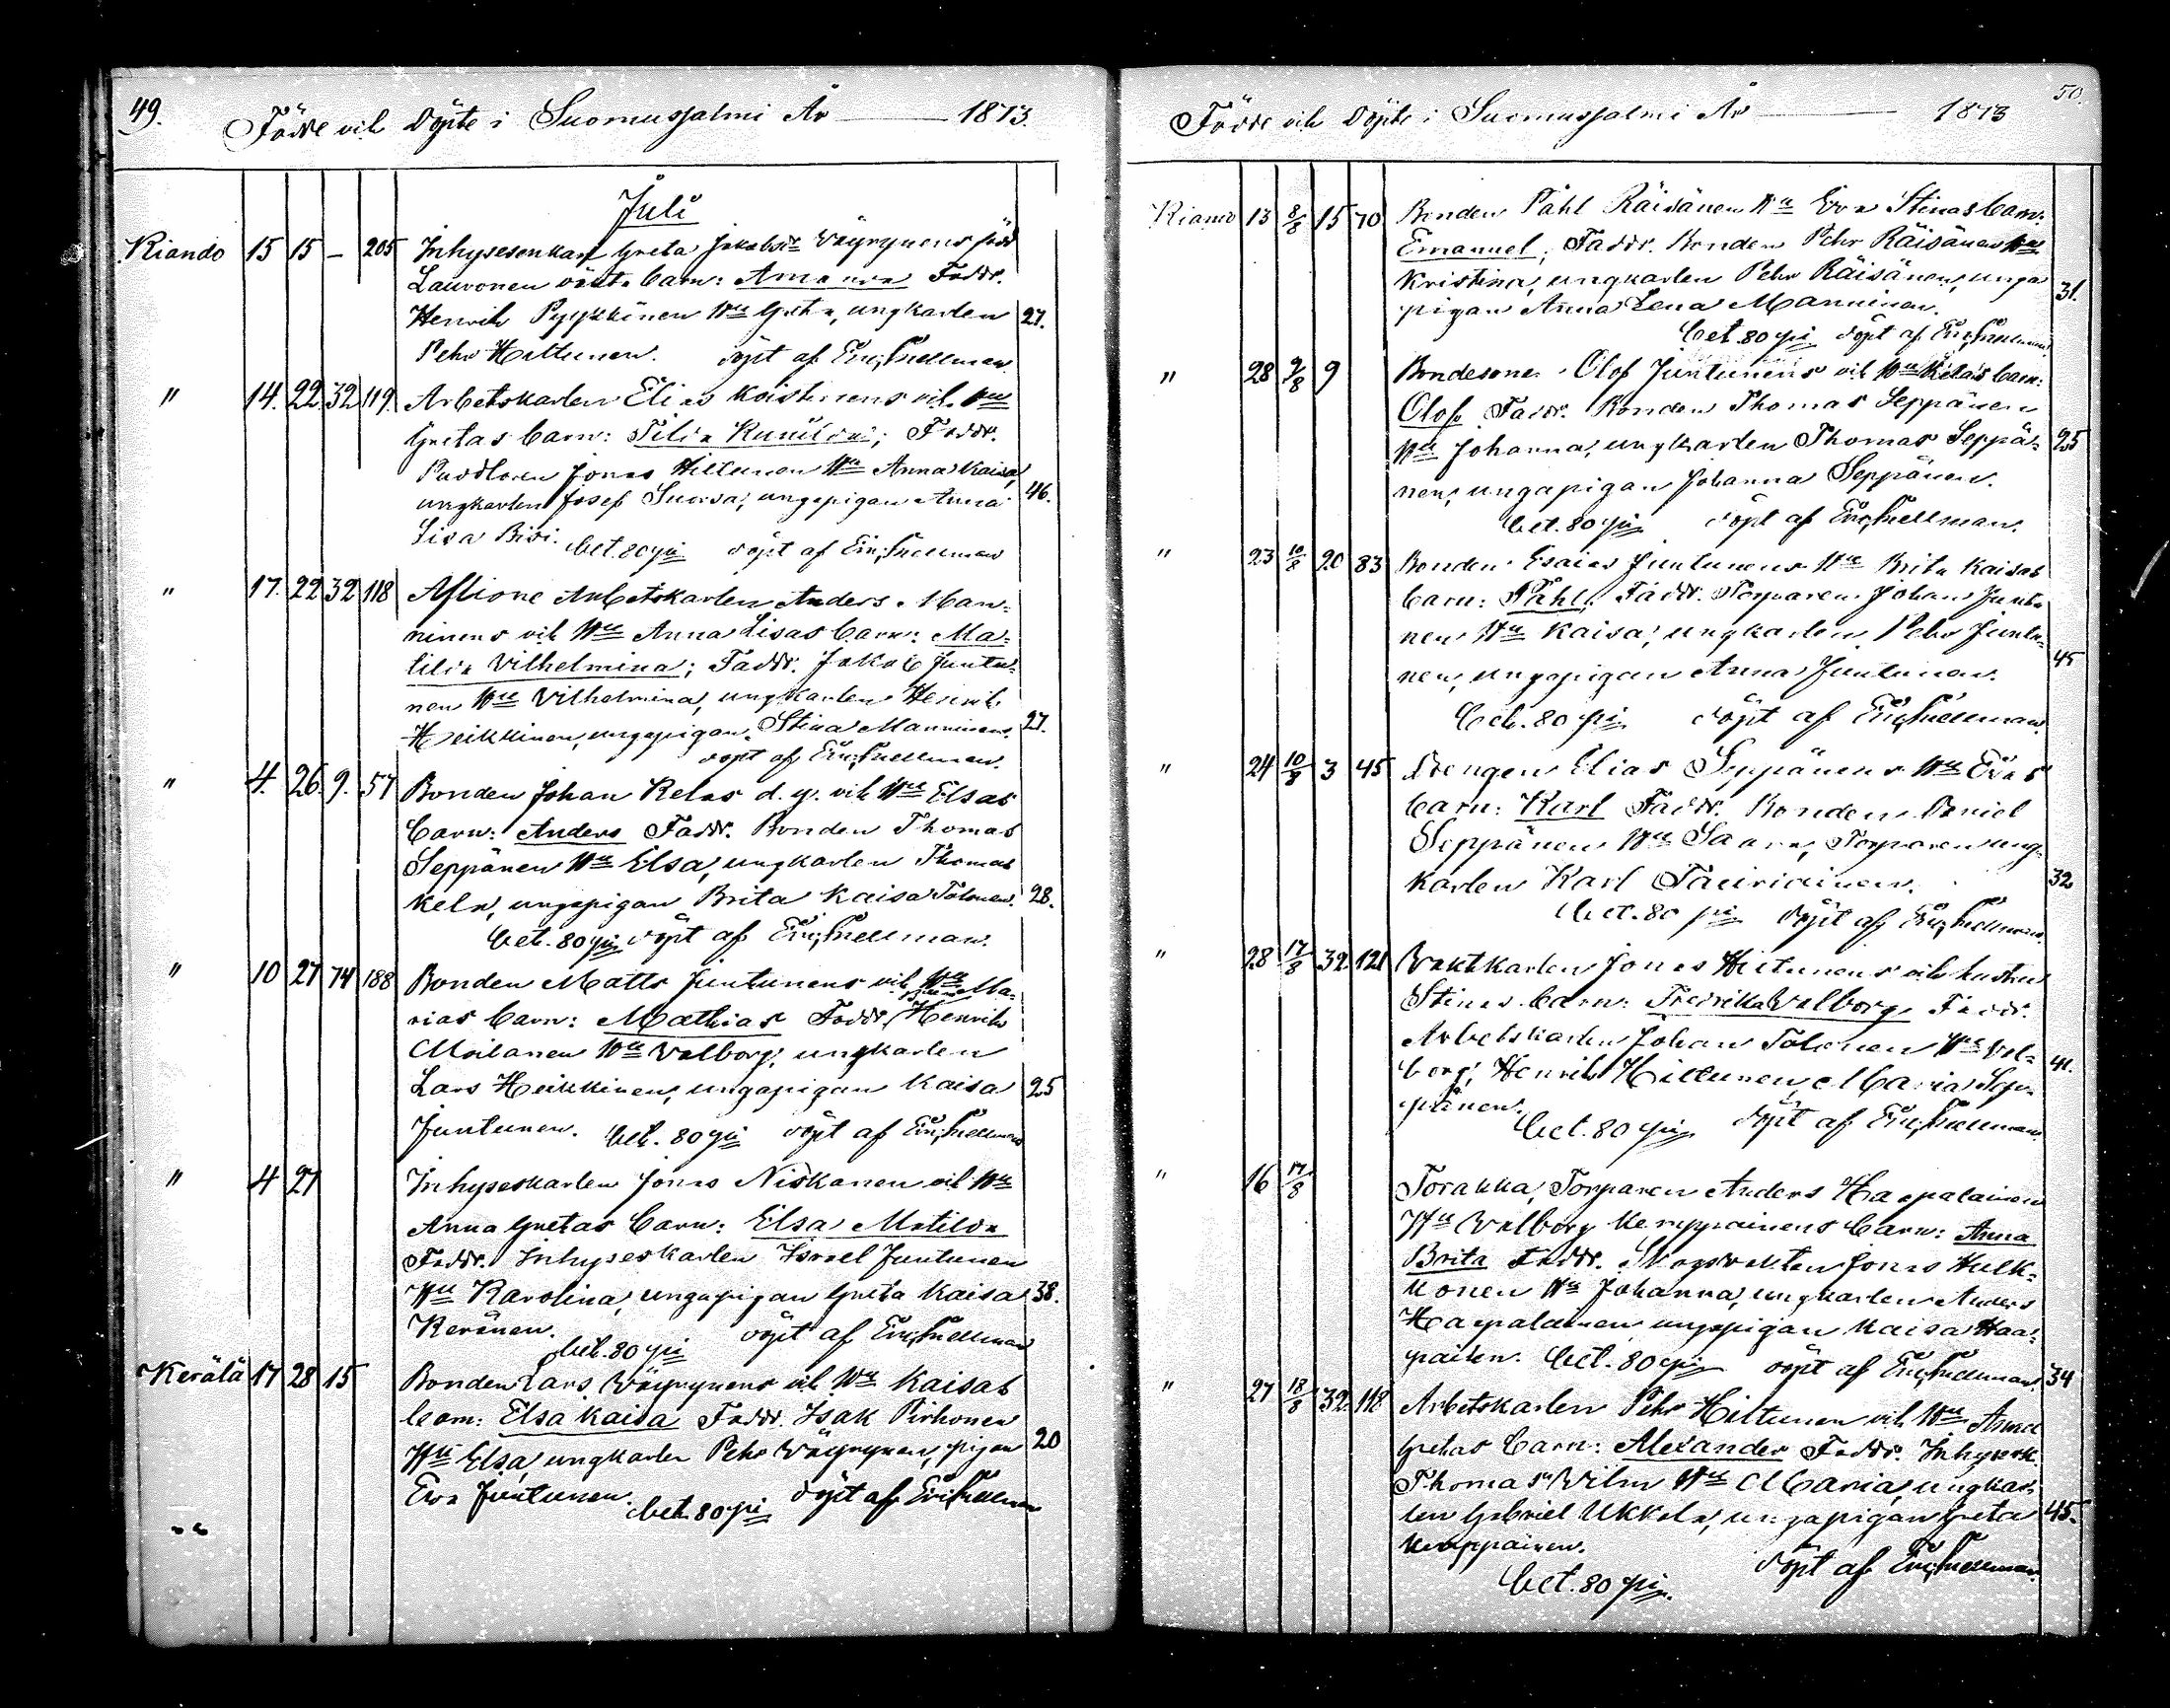 49.
Födde och Döpte i Suomussalmi År 1873.
Juli
Kiando 15 15 – 205 Inhysesenkan Greta Jakobsdr Väyrynens född
Lauronen oäkta barn: Amanda Faddr.
Henrik Pyykkönen Hu Greta, ungkarlen 27.
Pehr Heltunen. döpt af Eric Snellman
" 14. 22 32 119. Arbetskarlen Elias Koistinens och Hu
Gretas barn: Tilda Kunilda; Faddr.
Jonas Hiltunen Hu Anna Kaisa,
ungkarlen Josef Suorsa, ungapigan Anna 46.
Lisa Bisi. bet. 80 pi döpt af Eric Snellman
" 17. 22 32 118 Aflidne Arbetskarlen Anders Man-
ninens och Hu Anna Lisas barn: Ma-
tilda Vilhelmina; Faddr. Jakob Juntu-
nen Hu Vilhelmina, ungkarlen Henrik
Heikkinen, ungapigan Stina Manninen. 27.
döpt af Eric Snellman.
" 4. 26. 9. 57 Bonden Johan Kelas d. y. och Hu Elsas
barn: Anders Faddr. Bonden Thomas
Seppänen Hu Elsa, ungkarlen Thomas
Kela, ungapigan Brita Kaisa Tolonen. 28.
bet. 80 pi döpt af Eric Snellman.
" 10 27 74 188 Bonden Matts Juntunens och Hu Ma-
rias barn: Mathias Faddr. Henrik
Moilanen Hu Valborg, ungkarlen
Lars Heikkinen, ungapigan Kaisa 25
Juntunen. bet. 80 pi döpt af Eric Snellman
" 4 27 Inhyseskarlen Jonas Niskanen och Hu
Anna Gretas barn: Elsa Matilda
Faddr. Inhyseskarlen Israel Juntunen
Hu Karolina, ungapigan Greta Kaisa 38.
Keränen.
bet. 80 pi döpt af Eric Snellman
Kerälä 17 28 15 Bonden Lars Väyrynens och Hu Kaisas
barn: Elsa Kaisa Faddr. Isak Pirhonen
Hu Elsa, ungkarlen Pehr Väyrynen, pigan 20
Eva Juntunen. bet. 80 pi döpt af Eric Snellman
50.
Födde och Döpte i Suomussalmi År 1873
Kiando 13 8/8 15 70 Bonden Påhl Räisänen Hu Eva Stinas barn.
Emanuel, Faddr. Bonden Pehr Räisänen Hu
Kristina, ungkarlen Pehr Räisänen, unga
pigan Anna Lena Manninen. 31.
bet. 80 pi döpt af Eric Snellman.
" 28 9/8 9 Bondesonen Olof Juntunens och Hu Kaisas barn:
Olof Faddr. Bonden Thomas Seppänen
Hu Johanna, ungkarlen Thomas Seppä- 25
nen, ungapigan Johanna Seppänen.
bet. 80 pi döpt af Eric Snellman.
" 23 10/8 20 83 Bonden Esaias Juntunens Hu Brita Kaisas
barn: Påhl. Faddr. Torparen Johan Juntu
nen Hu Kaisa, ungkarlen Pehr Juntu-
nen, ungapigan Anna Juntunen. 45
bet. 80 pi döpt af Eric Snellman.
" 24 10/8 3 45 Drengen Elias Seppänens Hu Evas
barn: Karl Faddr. Bonden Daniel
Seppänen Hu Saara, Torparen ung-
karlen Karl Tauriainen. 32
bet. 80 pi döpt af Eric Snellman.
" 28 17/8 32. 121 Vaktkarlen Jonas Hiltunens och hustru
Stinas barn: Fredrika Valborg, Faddr.
Arbetskarlen Johan Tolonen Hu Val-
borg, Henrik Hiltunen, Maria Sep- 41.
pänen.
bet. 80 pi döpt af Eric Snellman
" 16 17/8 Torakka, Torparen Anders Haapalainen
Hu Valborg Kemppainens barn: Anna
Brita Faddr. Skogsvakten Jonas Hulk-
konen Hu Johanna, ungkarlen Anders
Haapalainen ungapigan Kaisa Haa-
palain. bet. 80 pi döpt af Eric Snellman. 34
" 27 18/8 32. 118 Arbetskarlen Pehr Hiltunen och Hu Anna
Gretas barn: Alexander Faddr. Inhysesk.
Thomas Hu Maria, ungkar-
len Gabriel Ukkola, ungapigan Greta 45.
Kemppainen.
bet. 80 pi. döpt af Eric Snellman.